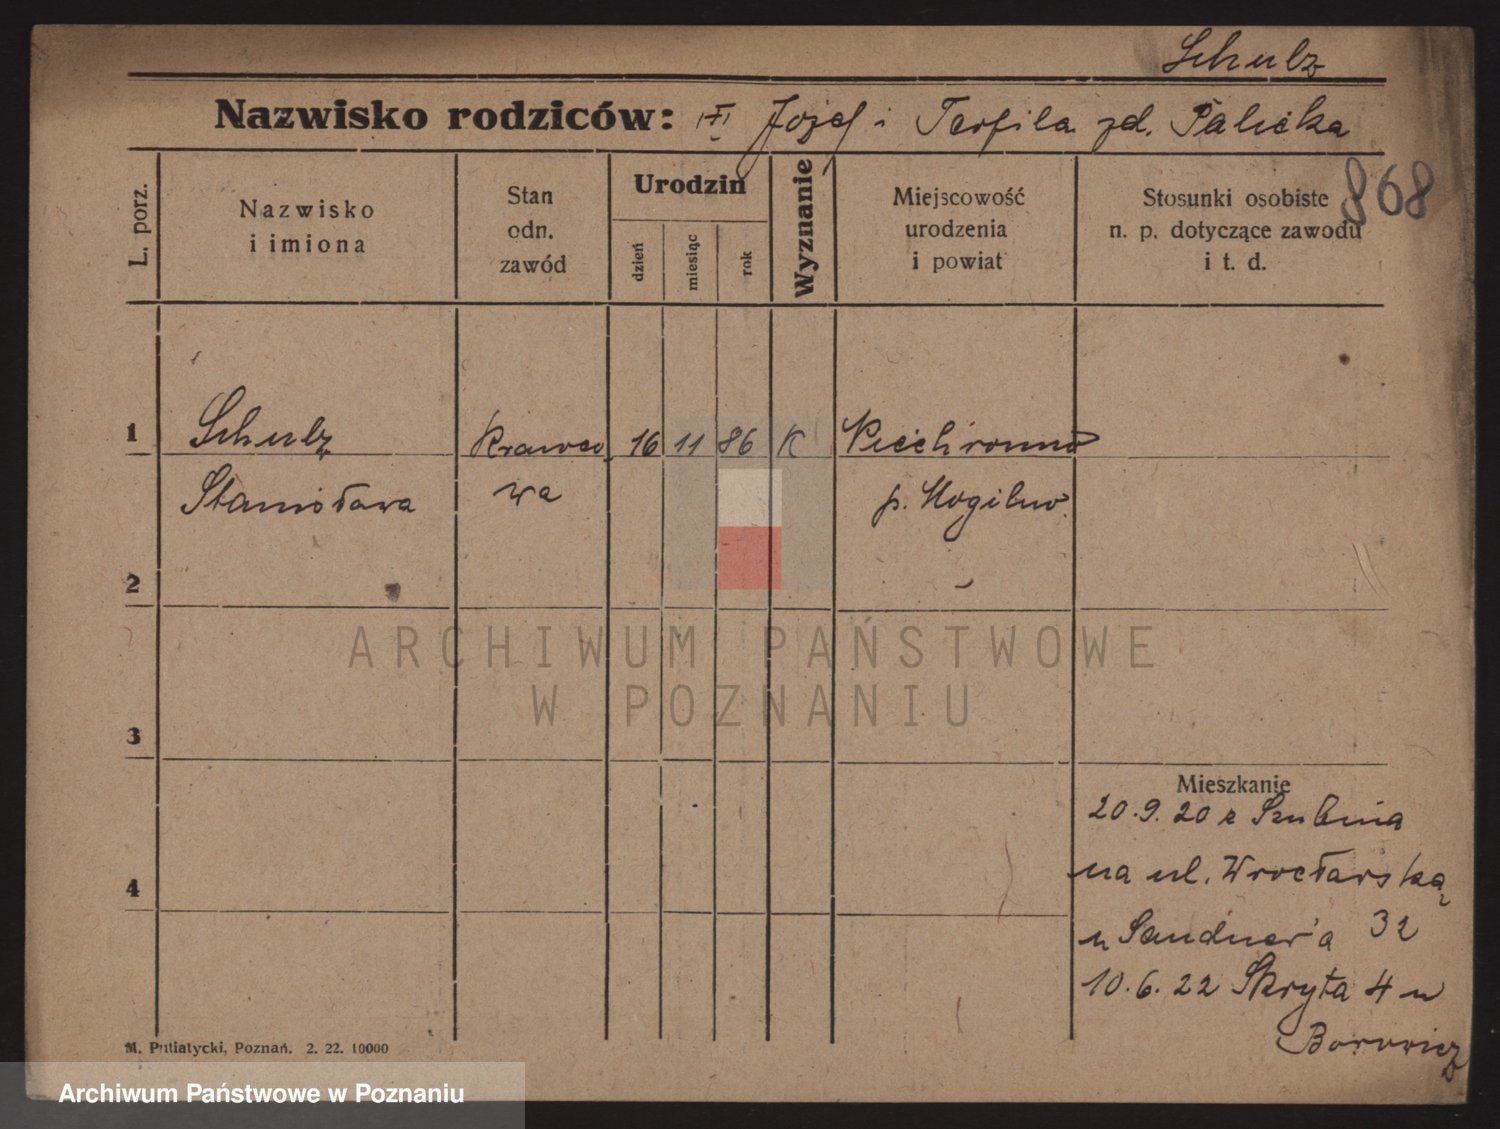 Schulz
Nazwisko rodziców: Józef i Teofila zd. Palicka
868
L. porz.
Nazwisko
i imiona
Stan
odn.
zawód
Urodzin
dzień
miesiąc
rok
Wyznanie
Miejscowość
urodzenia
i powiat
Stosunki osobiste
n. p. dotyczące zawodu
i t. d.
1 Schulz Krawco 16 11 86 K
Stanisława wa p. Mogilno
2
ARCHIWUM PAŃSTWOWE
W POZNANIU
3
Mieszkanie
20.9.20 z Szubina
na ul. Wrocławską
4
u Sandner'a 32
10.6.22 Skryta 4 u
Borowicz
M. Putiatycki, Poznań. 2. 22. 10000
Archiwum Państwowe w Poznaniu